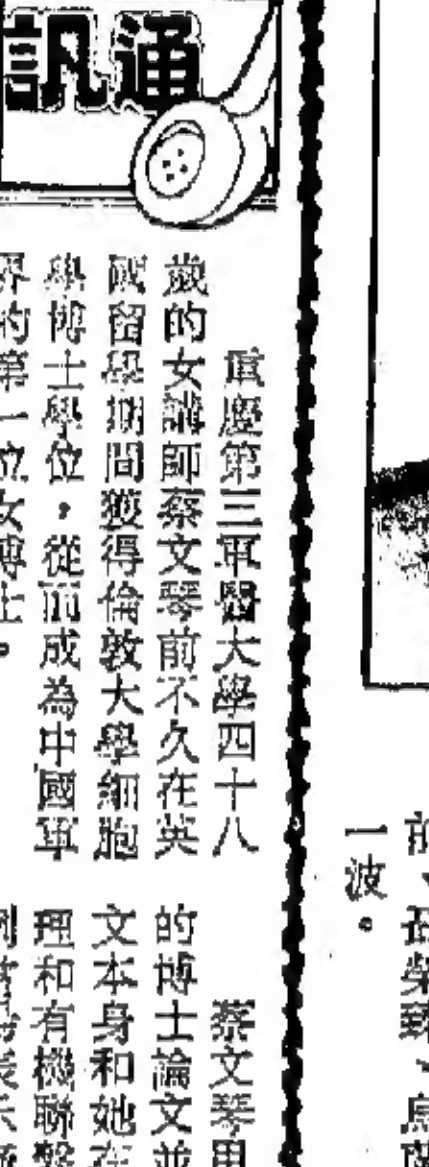 通訊
重慶第三軍醫大學四十八
歲的女講師蔡文琴前不久在英
國留學期間獲得倫敦大學細胞
學博士學位，從而成為中國軍
界的第一位女博士。
蔡文琴用
的博士論文並
文本身和她在
理和有機聯繫
一波。